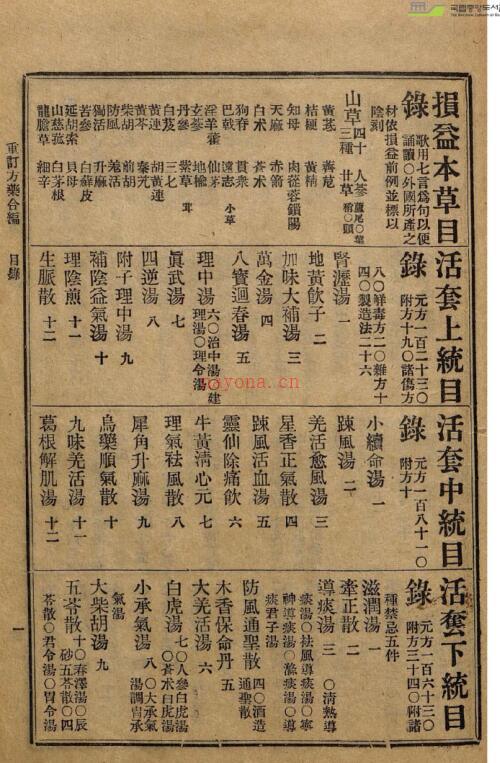 損益本草目
錄 歌用七言爲句以便
誦讀〇外國所產之
材依損益前例並標以
陰刻
山草四十三種 人蔘 蘆尾〇葉 甘草 稍〇頭
黃芪 薺苨
桔梗 黃精
知母 肉蓯蓉鎖陽
天麻 赤箭
白术 蒼术
狗脊 貫衆
巴戟 遠志 小草
淫羊藿 仙茅
玄蔘 地楡
丹參 紫草 茸
白芨 三七
黃連 胡黃連
黃芩 秦艽
柴胡 前胡
防風 羌活
獨活 升麻
苦參 白蘚皮
延胡索 貝母
山慈菰 白茅根
龍膽草 細辛
活套上統目
錄 元方一百二十三〇
附方十九〇諸傷方
八〇鮮毒方二〇雜方十
四〇製造法二十六
腎瀝湯 一
地黃飮子 二
加味大補湯 三
萬金湯 四
八寶迴春湯 五
理中湯 六〇治中湯〇建
理湯〇理令湯
眞武湯 七
四逆湯 八
附子理中湯 九
補陰益氣湯 十
理陰煎 十一
生脈散 十二
活套中統目
錄 元方一百八十一〇
附方十
小續命湯 一
疎風湯 二
羌活愈風湯 三
星香正氣散 四
疎風活血湯 五
靈仙除痛飮 六
牛黃淸心元 七
理氣祛風散 八
犀角升麻湯 九
烏藥順氣散 十
九味羌活湯 十一
葛根解肌湯 十二
活套下統目
錄 元方一百六十三〇
附方三十四〇附諸
種禁忌五件
滋潤湯 一
牽正散 二
導痰湯 三 〇淸熱導
痰湯〇袪風導痰湯〇寧
神導痰湯〇滌痰湯〇導
痰君子湯
防風通聖散 四〇酒造
通聖散
木香保命丹 五
大羌活湯 六
白虎湯 七〇人參白虎湯
〇蒼术白虎湯
小承氣湯 八〇大承氣
湯調胃承
氣湯
大柴胡湯 九
五苓散 十〇春澤湯〇辰
砂五苓散〇四
苓散〇君令湯〇胃令湯
重訂方藥合編 目錄 一
國立中央도서관
nayona.cn